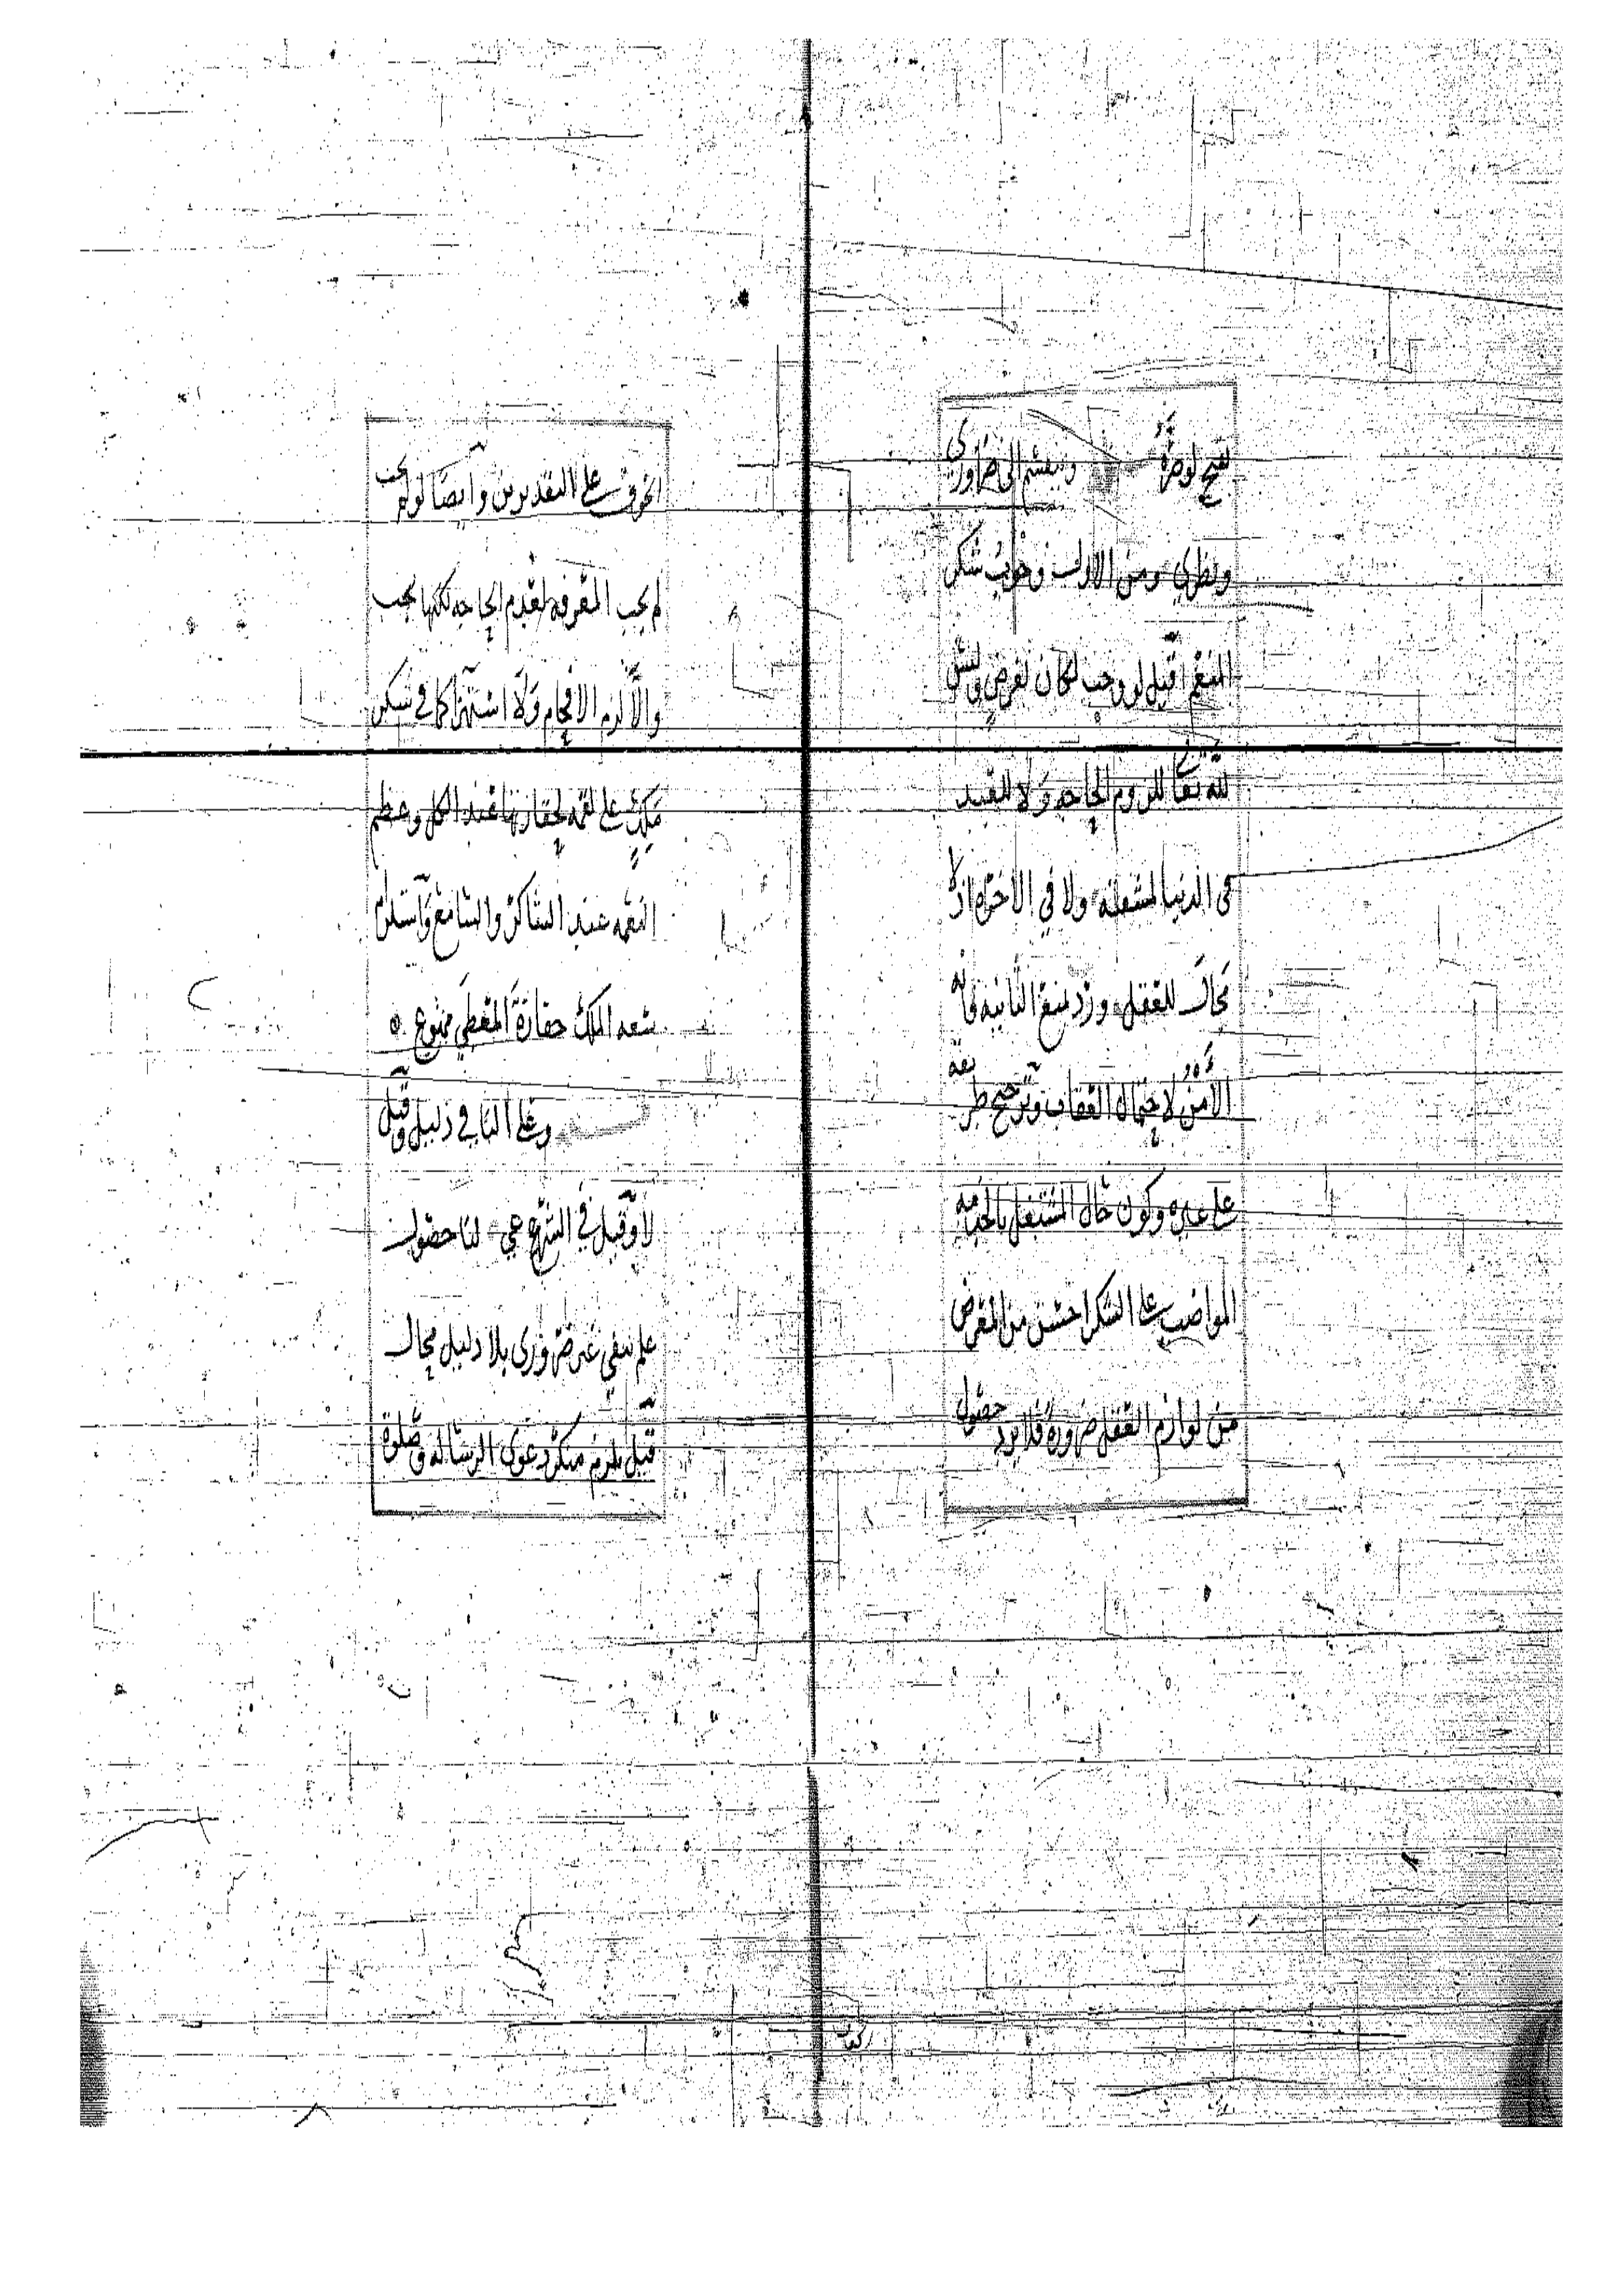 لقبح لوضرّ وينقسم الى ضروري
ونظري ومن الاول وجوب شكر
المنعم قيل لو وجب لكان لغرض وليس
لله تعالى للزوم الحاجه ولا للعبد
في الدنيا لمشقته ولا في الاخره اذ لا
مجال للعقل ورد بمنع الثانيه فانه
الامن لاحتمال العقاب وترجيح طر يقه
على غيره وكون حال المشتغل بالخدمه
المواضب على الشكر احسن من المعرض
من لوازم العقل ضرورة فلا يرد حصول
الخوف على التقديرين وايضا لو لم يجب
لم يجب المعرفه لعدم الحاجه لكنها يجب
والا لزم الافحام ولا استهزا كما في شكر
ملك على لقمه لحقارتها عند الكل وعظم
النعمه عند الشاكر والسامع واستلزام
سعه الملك حقارة المعطي ممنوع ه
وعلى النافي دليل وقيل
لا وقيل في الشرعي لنا حصول
علم بنفي غير ضروري بلا دليل محال
قيل يلزم منكر دعوى الرساله وصلوة